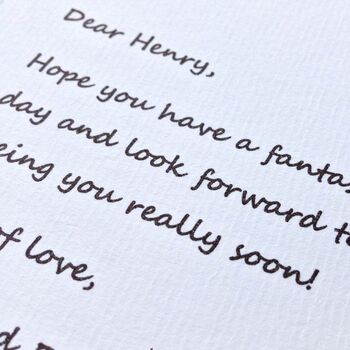 Dear Henry,
Hope you have a fantas
day and look forward t
eing you really soon!
of love,